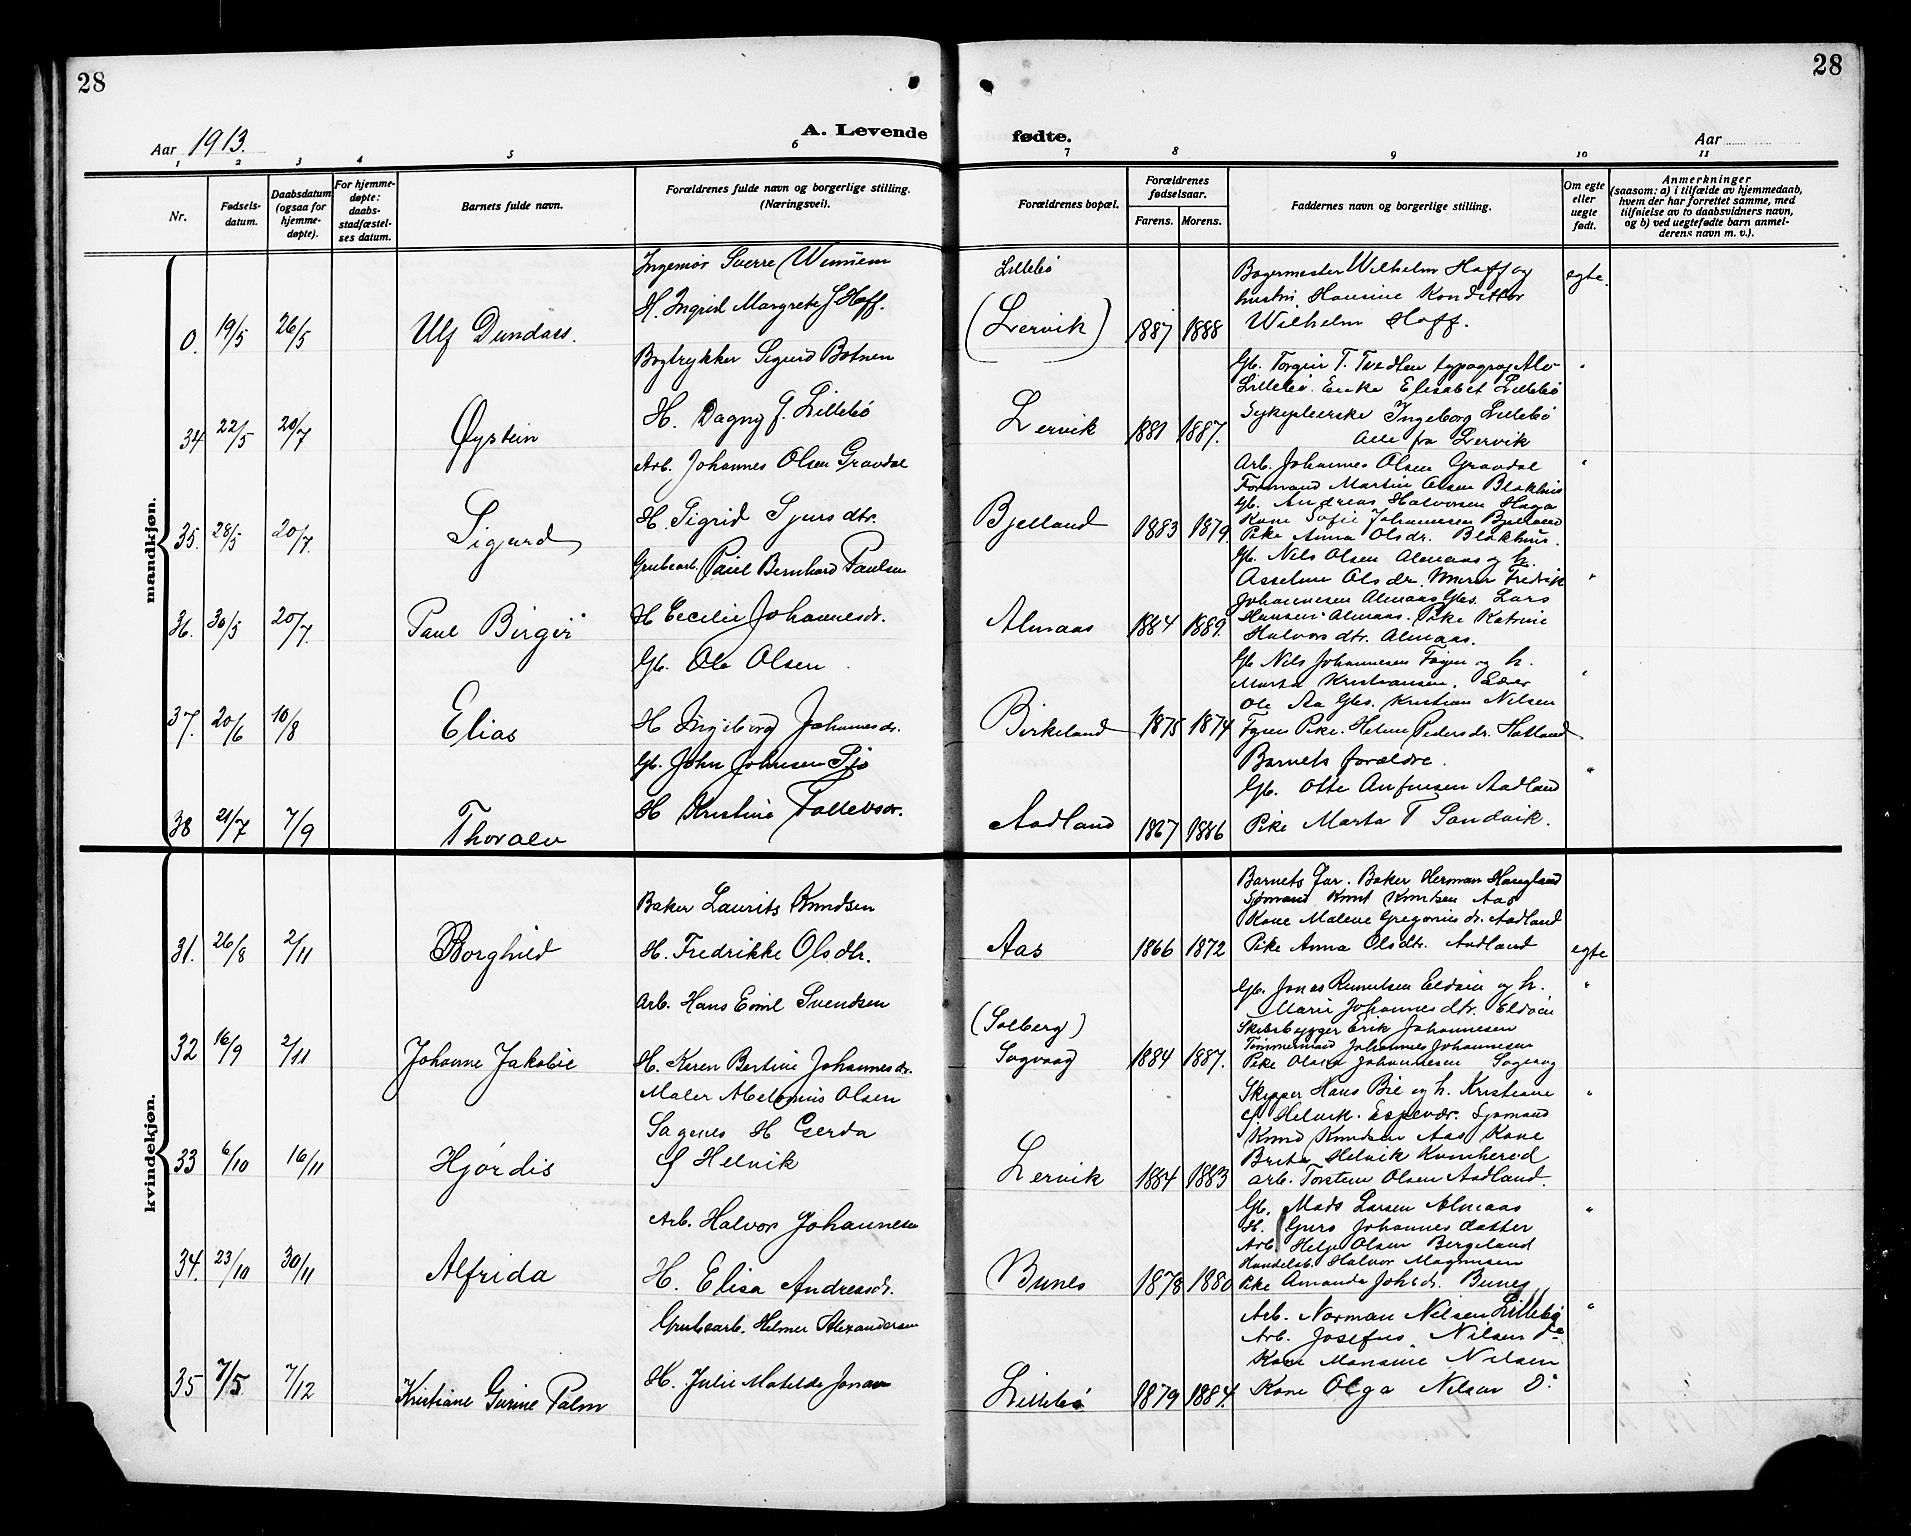 28
28
Aar 1913.
A. Levende fødte.
Aar
1 2 3 4 5 6 7 8 9 10 11
Nr.
Fødselsdatum.
Daabsdatum (ogsaa for hjemmedøpte).
For hjemmedøpte: daabsstadfæstelses datum.
Barnets fulde navn.
Forældrenes fulde navn og borgerlige stilling. (Næringsvei).
Forældrenes bopæl.
Forældrenes fødselsaar.
Farens. Morens.
Faddernes navn og borgerlige stilling.
Om egte eller uegte født.
Anmerkninger
(saasom: a) i tilfælde av hjemmedaab,
hvem der har forrettet samme, med
tilføielse av to daabsvidners navn,
og b) ved uegtefødte barn anmelderens navn m. v.).
mandkjøn.
0. 19/5 26/5 Ulf Dundass.
Ingeniør Sverre
H. Ingrid Margrete J Hoff.
Lillebø
(Lervik) 1887 1888
Bagermester Wilhelm Hoff og
hustru Hansine Konditor
Wilhelm Hoff.
egte.
34 22/5 20/7 Øystein
Bogtrykker Sigurd Botnen
H. Dagny G. Lillebø
Lervik 1881 1887.
Gb. Torgeir T. Tvedten typograf Alv
Lillebø. Enke Elisabet Lillebø
Sykepleierske Ingeborg Lillebø
Alle fra Lervik
"
35. 28/5 20/7. Sigurd
Arb. Johannes Olsen Gravdal
H. Sigrid Sjursdtr.
Bjelland 1883 1879
Arb. Johannes Olsen Gravdal
Formand Martin Olsen Blokhus
Gb. Andreas Halvorsen Haga
Kone Sofie Johannessen Bjelland
Pike Anna Olsdr. Blokhus.
"
36. 30/5 20/7. Paul Birger
Grubearb. Paul Bernhard Paulsen
H Cecilie Johannesdr.
Almaas 1884 1889.
Gb. Nils Olsen Almaas og h.
Asseline Olsdr. Murer Fredrik
Johannesen Almaas Gbs. Lars
Hansen Almaas. Pike Katrine
Halvorsdtr. Almaas.
"
37. 20/6 10/8 Elias
Gb. Ole Olsen
H Ingeborg Johannesdr.
Birkeland 1875 1874
Gb Nils Johannesen Tøgen og h.
Marta Kristiansen.
Ole Aa Gbs. Kristian Nilsen
Pike. Helene Pedersdr. Hatland
"
38 21/7 7/9 Thoralv
Gb. John Johnsen
H Kristine Tollevsdr.
Aadland 1867 1886
Barnets forældre.
Gb. Otte Anfinsen Aadland
Pike Marta T Sandvik.
"
kvindekjøn.
31. 26/8 2/11 Borghild
Baker Laurits Knudsen
H. Fredrikke Olsdtr.
Aas 1866 1872
Barnets far. Baker Herman Haugland
Sjømand Knut Knudsen Aas
Kone Malene Gregoriusdr. Aadland
Pike Anna Olsdtr. Aadland
egte
32 16/9 2/11 Johanne Jakobie
Arb. Hans Emil Svendsen
H. Karen Bertine Johannesdr.
(Solberg)
Sagvaag 1884 1887.
Gb. Jonas Rasmusen Eldøen og h.
Marie Johannesdtr. Eldøen
Skibsbygger Erik Johannesen
Tømmermand Johannes Johannesen
Pike Olava Johannesen Sagvaag
"
33 6/10 16/11 Hjørdis
Maler Meltonius Olsen
Sagenes H Gerda
S Helvik
Lervik 1884 1883
Skipper Hans Bie og h. Kristiane
S. Helvik. Espevær. Sjømand
Knud Knudsen Aas Kone
Brita Helvik Kvinherred
arb. Torstein Olsen Aadland.
"
34. 23/10 30/11 Alfrida
Arb. Halvor Johannesen
H. Elisa Andreasdr.
Bunes 1878 1880
Gb. Mads Larsen Almaas
H. Guro Johannesdatter
Arb. Helge Olsen Bergeland
Handelsb. Halvor Magnussen
Pike Amanda Johsdr. Bunes
"
35 7/5 7/12 Kristiane Gurine Palm
Grubearb. Helmer Alexandersen
H. Julie Matilde Jonas
Lillebø 1879 1884.
Arb. Norman Nilsen Lillebø
Arb. Josefus Nilsen do
Kone Mansine Nilsen
Kone Olga Nilsen Do
"